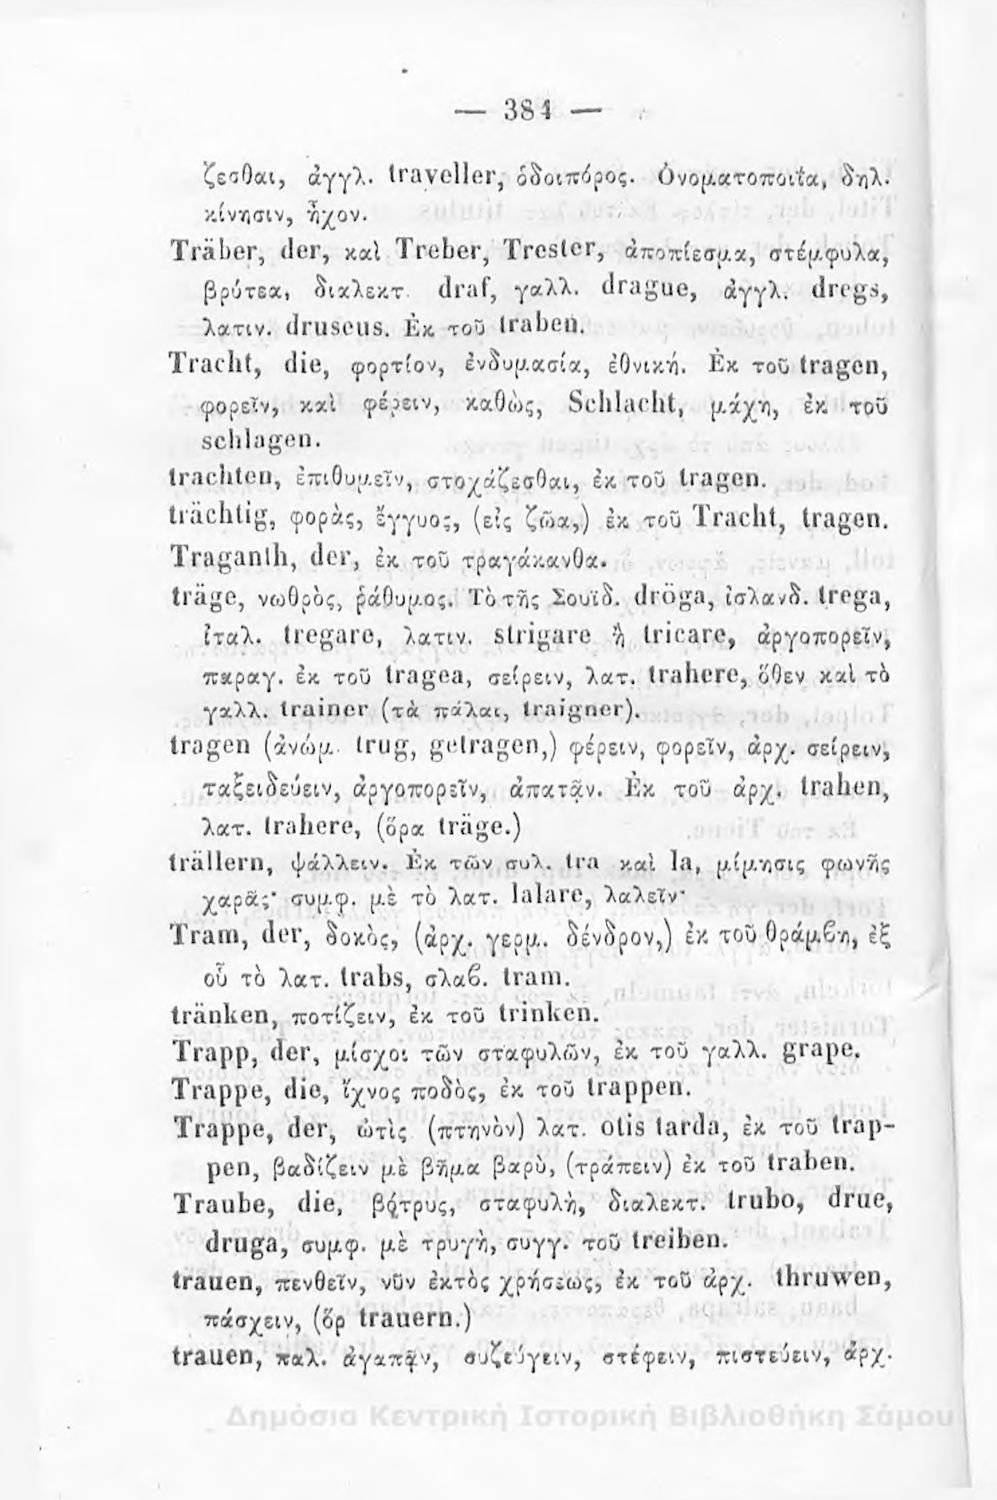 — 384 —
ζεσθαι, ἀγγλ. traveller, ὁδοιπόρος. Ὀνοματοποιΐα, δηλ.
κίνησιν, ἦχον.
Träber, der, καὶ Treber, Trester, ἀποπίεσμα, στέμφυλα,
βρύτεα, διαλεκτ. draf, γαλλ. drague, ἀγγλ. dregs,
λατιν. druseus. Ἐκ τοῦ traben.
Tracht, die, φορτίον, ἐνδυμασία, ἐθνική. Ἐκ τοῦ tragen,
φορεῖν, καὶ φέρειν, καθὼς, Schlacht, μάχη, ἐκ τοῦ
schlagen.
trachten, ἐπιθυμεῖν, στοχάζεσθαι, ἐκ τοῦ tragen.
trächtig, φορὰς, ἔγγυος, (εἰς ζῶα,) ἐκ τοῦ Tracht, tragen.
Traganth, der, ἐκ τοῦ τραγάκανθα.
träge, νωθρὸς, ῥάθυμος. Τὸ τῆς Σουϊδ. dröga, ἰσλανδ. trega,
ἰταλ. tregare, λατιν. strigare ἢ tricare, ἀργοπορεῖν,
παραγ. ἐκ τοῦ tragea, σείρειν, λατ. trahere, ὅθεν καὶ τὸ
γαλλ. trainer (τὰ πάλαι, traigner).
tragen (ἀνώμ. trug, getragen,) φέρειν, φορεῖν, ἀρχ. σείρειν,
ταξειδεύειν, ἀργοπορεῖν, ἀπατᾷν. Ἐκ τοῦ ἀρχ. trahen,
λατ. trahere, (ὅρα träge.)
trällern, ψάλλειν. Ἐκ τῶν συλ. tra καὶ la, μίμησις φωνῆς
χαρᾶς· συμφ. μὲ τὸ λατ. lalare, λαλεῖν·
Tram, der, δοκὸς, (ἀρχ. γερμ. δένδρον,) ἐκ τοῦ θράμβη, ἐξ
οὗ τὸ λατ. trabs, σλαβ. tram.
tränken, ποτίζειν, ἐκ τοῦ trinken.
Trapp, der, μίσχοι τῶν σταφυλῶν, ἐκ τοῦ γαλλ. grape.
Trappe, die, ἴχνος ποδὸς, ἐκ τοῦ trappen.
Trappe, der, ὠτὶς (πτηνὸν) λατ. otis tarda, ἐκ τοῦ trap-
pen, βαδίζειν μὲ βῆμα βαρὺ, (τράπειν) ἐκ τοῦ traben.
Traube, die, βότρυς, σταφυλὴ, διαλεκτ. trubo, drue,
druga, συμφ. μὲ τρυγὴ, συγγ. τοῦ treiben.
trauen, πενθεῖν, νῦν ἐκτὸς χρήσεως, ἐκ τοῦ ἀρχ. thruwen,
πάσχειν, (ὅρ trauern.)
trauen, παλ. ἀγαπᾷν, συζεύγειν, στέφειν, πιστεύειν, ἀρχ.
Δημόσια Κεντρική Ιστορική Βιβλιοθήκη Σάμου